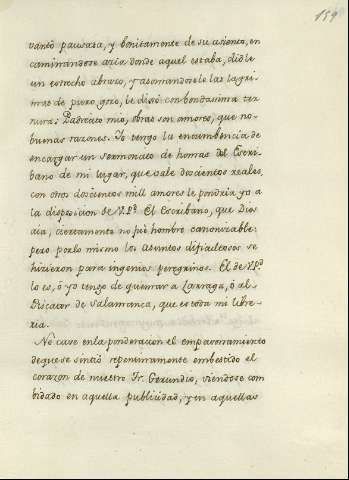 159
vantó pausata, y bonitamente de su asiento, en
caminandose azia donde aquel estaba, dióle
un estrecho abrazo, y asomandosele las lagri-
mas de puro gozo, le dixo con bondadissima ter
nura: Padrecito mio, obras son amores, que no-
buenas razones. Yo tengo la encumbencia de
encargar un sermonato de honras del Escri-
bano de mi lugar, que vale doscientos reales,
con otros doscientos mill amores le pondria yo a
la disposicion de V.P.d El Escribano, que Dios
aia, ciertamente no fué hombre canonizable:
pero por lo mismo los asuntos dificultosos se
hizieron para ingenios peregrinos. El de V.P.d
lo es, ó yo tengo de quemar a Larraga, ó al
Piscator de Salamanca, que es toda mi libre-
ria.
No cave en la ponderacion el empavonamiento
de que se sintió repentinamente embestido el
corazon de nuestro Fr. Gerundio, viendose com
bidado en aquella publicidad, y en aquellas